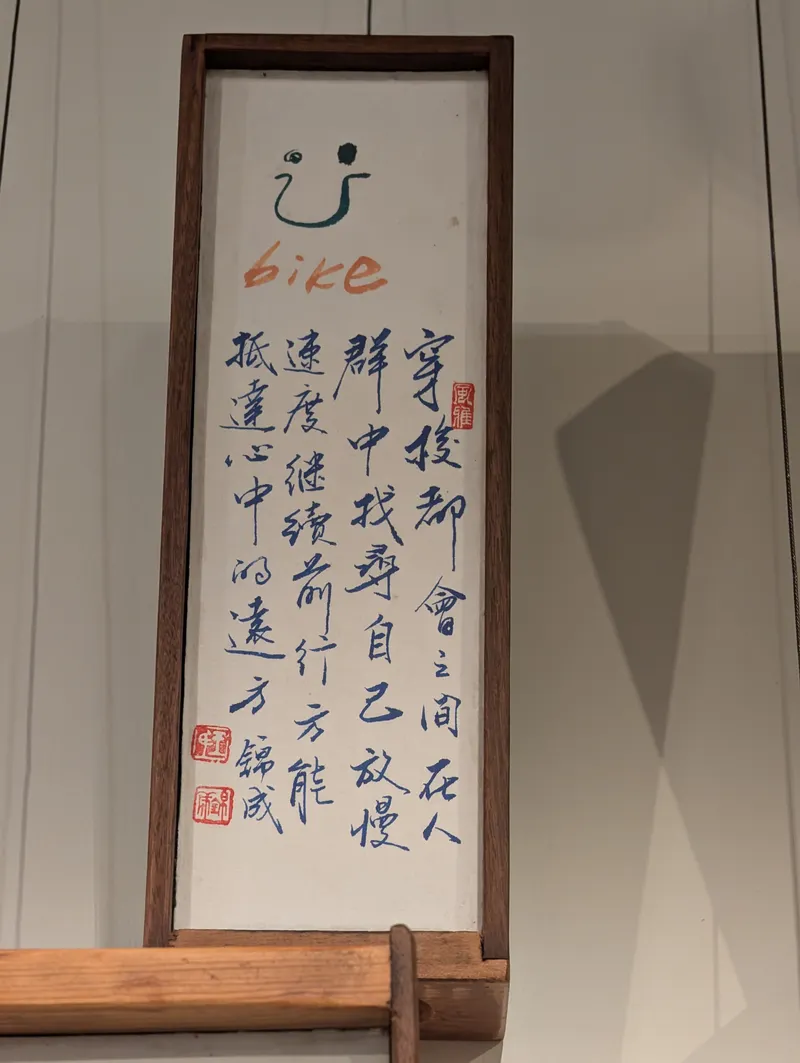 Ü
bike
穿梭都會之間在人
群中找尋自己放慢
速度继續前行方能
抵達心中的遠方 錦成
風雅